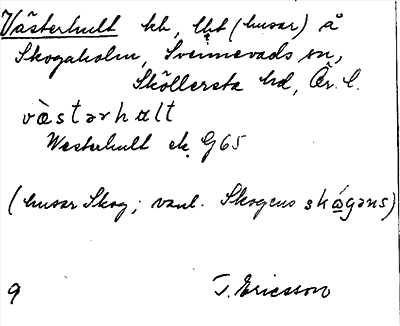 Västerhult kh, lht (husar) å
Skogaholm, Svennevads sn,
Sköllersta hd, Ör. l.
västərhult
Westerhult ek. G65
(husar Skog; vanl. Skogens skógəns)
9
T. Ericsson